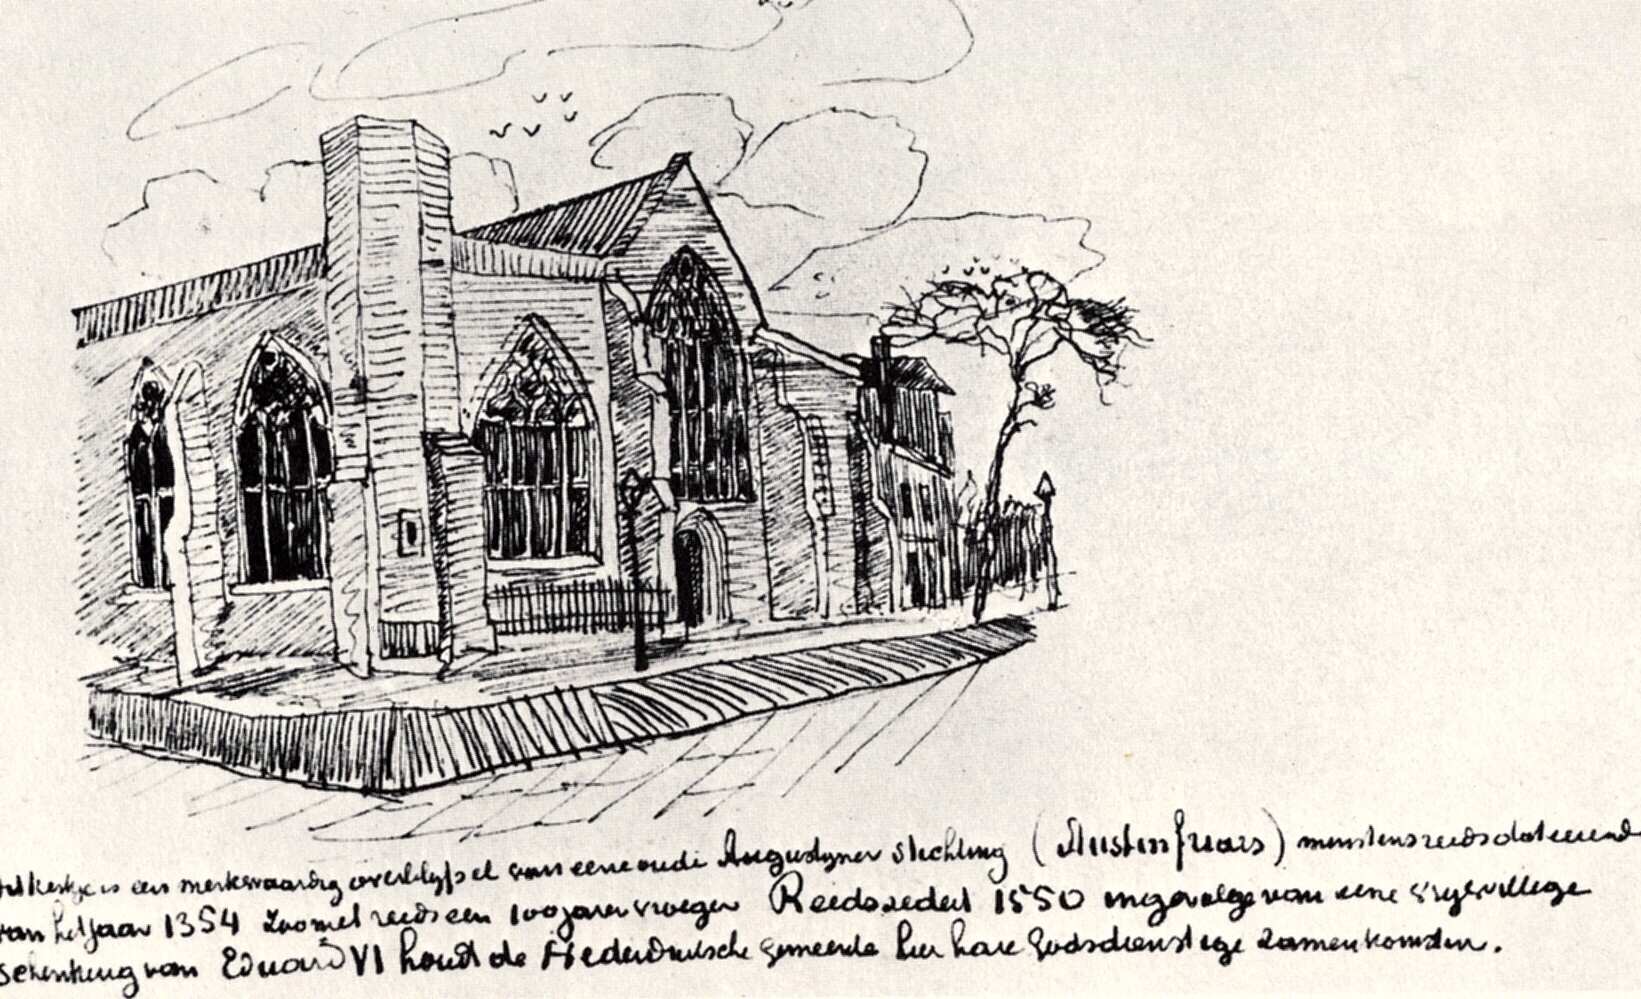 kerkje is een merkwaardig overblijfsel van eene oude Augustijner stichting (Austin friars) minstens reeds dateerend
van het jaar 1354 zoo niet reeds een 100 jaren vroeger Reeds sedert 1550 ingevolge van eene vrijwillige
schenking van Eduard VI houdt de Nederduitsche gemeente hier hare Godsdienstige zamenkomsten.